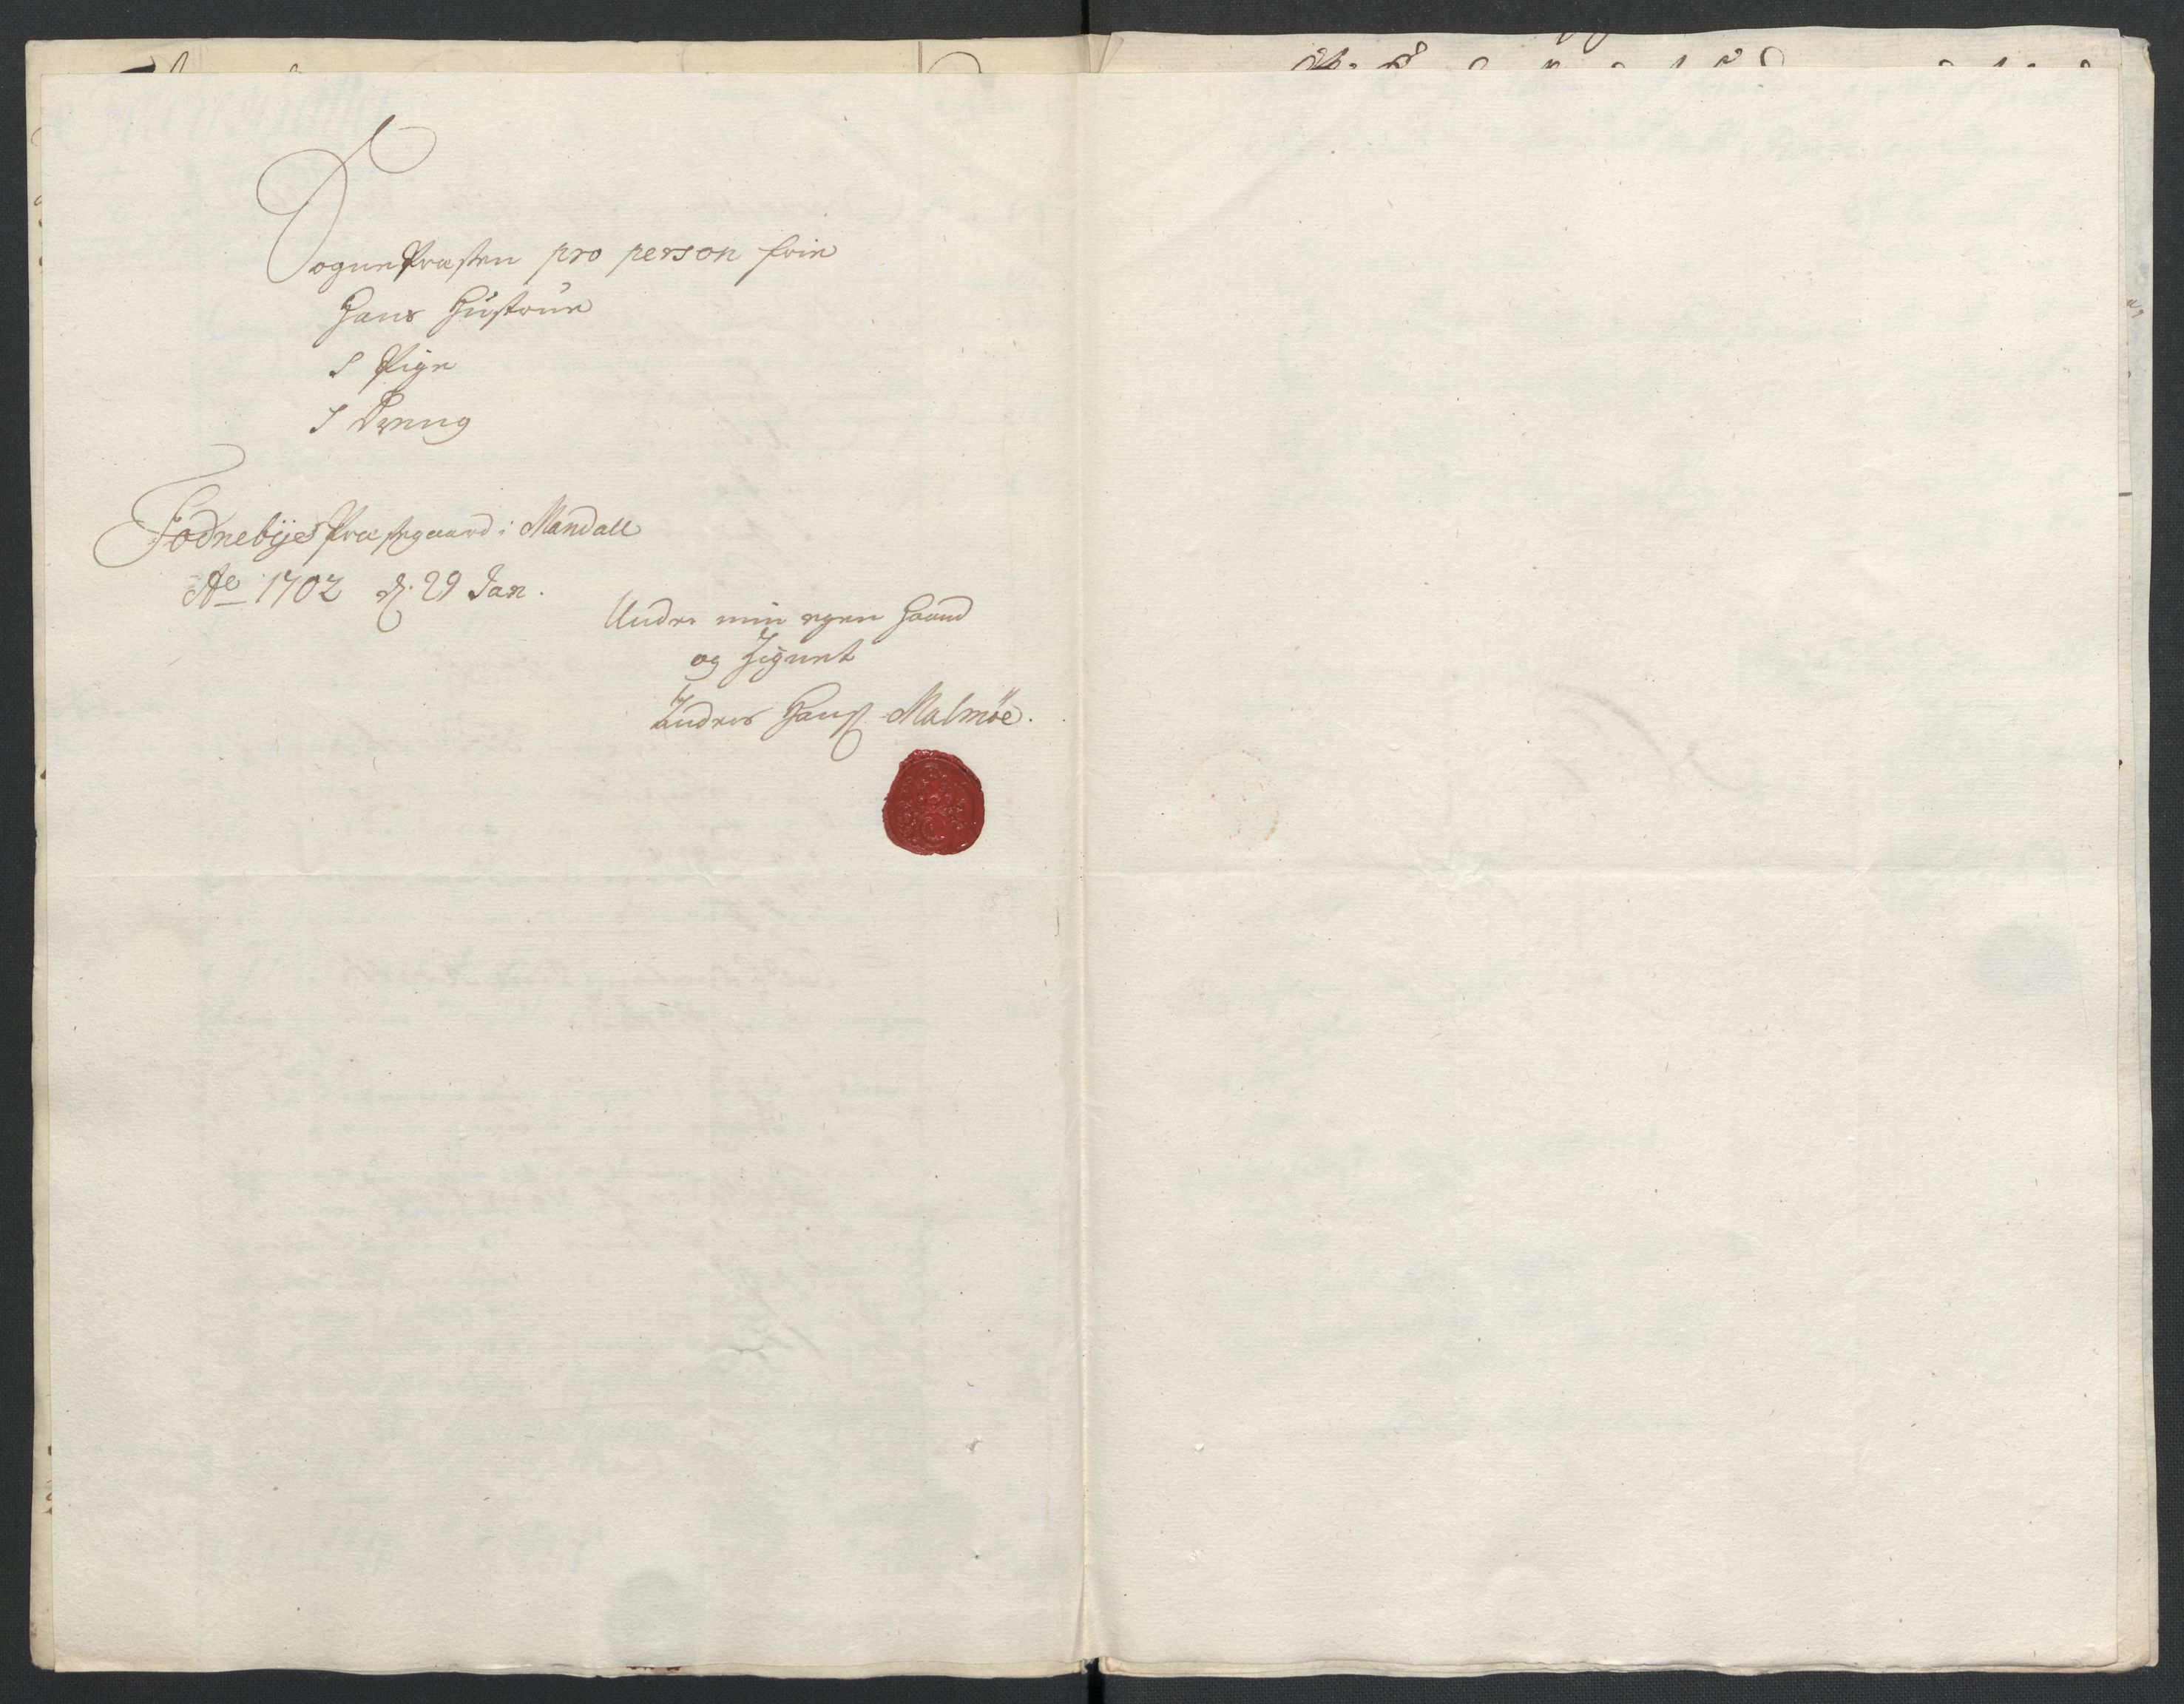 Sogne Præsten pro person frie
Hans Hüstrüe
1 Pige
1 Dreng
Fodnebÿes Præstegaard i Mandall
Ao 1702 d. 29 Jan.
Under min egen Haand
og Zignet
Anders Hanß Malmöe.